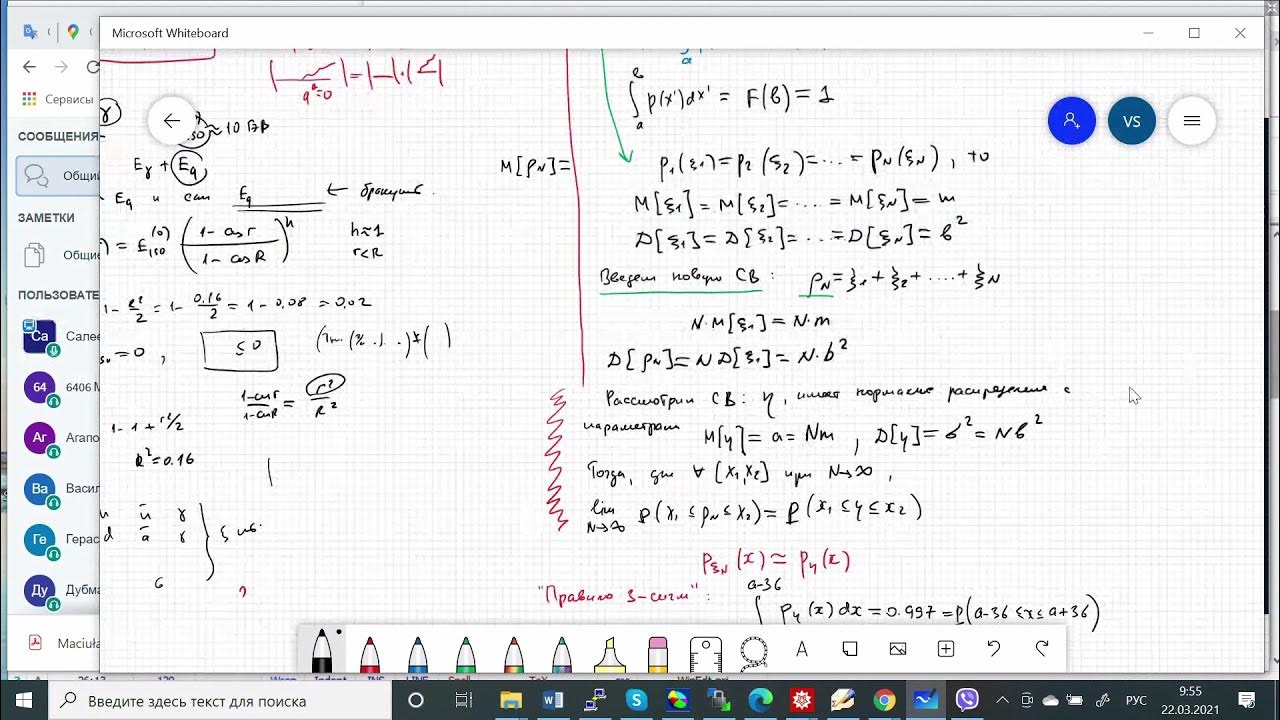 Microsoft Whiteboard
Сервисы
q²=0
СООБЩЕНИЯ
Общи
ЗАМЕТКИ
Общие
ПОЛЬЗОВАТЕ
Са Салее
64 6406 М
Ar Arano
Ва Васил
Ге Герас
Ду Дубма
Maciuła
VS
≈ 10 ГэВ
Eγ + Eq
Eq и сам Eq ←
= E iso (0) ( 1 - cos r / 1 - cos R )ⁿ
n ≈ 1
r < R
1 - R²/2 = 1 - 0.16/2 = 1 - 0.08 = 0.02
= 0 ,
≤ 0
1-cos r / 1-cos R = r² / R²
1 - 1 + r²/2
R² = 0.16
u ū γ
d
6
?
M[ρN] =
∫ₐᵇ p(x')dx' = F(b) = 1
p₁(ξ₁) = p₂(ξ₂) = ... = pN(ξN) , то
M[ξ₁] = M[ξ₂] = .... = M[ξN] = m
D[ξ₁] = D[ξ₂] = ... = D[ξN] = b²
Введем новую СВ : ρN = ξ₁ + ξ₂ + .... + ξN
N·M[ξ₁] = N·m
D[ρN] = N D[ξ₁] = N·b²
Рассмотрим СВ: η, имеет нормальное распределение с
параметрам M[η] = a = Nm , D[η] = σ² = Nb²
Тогда, для ∀ [x₁,x₂] при N→∞ ,
lim N→∞ P(x₁ ≤ ρN ≤ x₂) = P(x₁ ≤ η ≤ x₂)
PξN(x) ≃ Pη(x)
"Правило 3-сигм" :
a-3б
∫ pη(x)dx = 0.997 = P(a-3б ≤ x ≤ a+3б)
Wrap Indent INS LINE Spell TeX WinEdt.prj
Введите здесь текст для поиска
РУС
9:55
22.03.2021